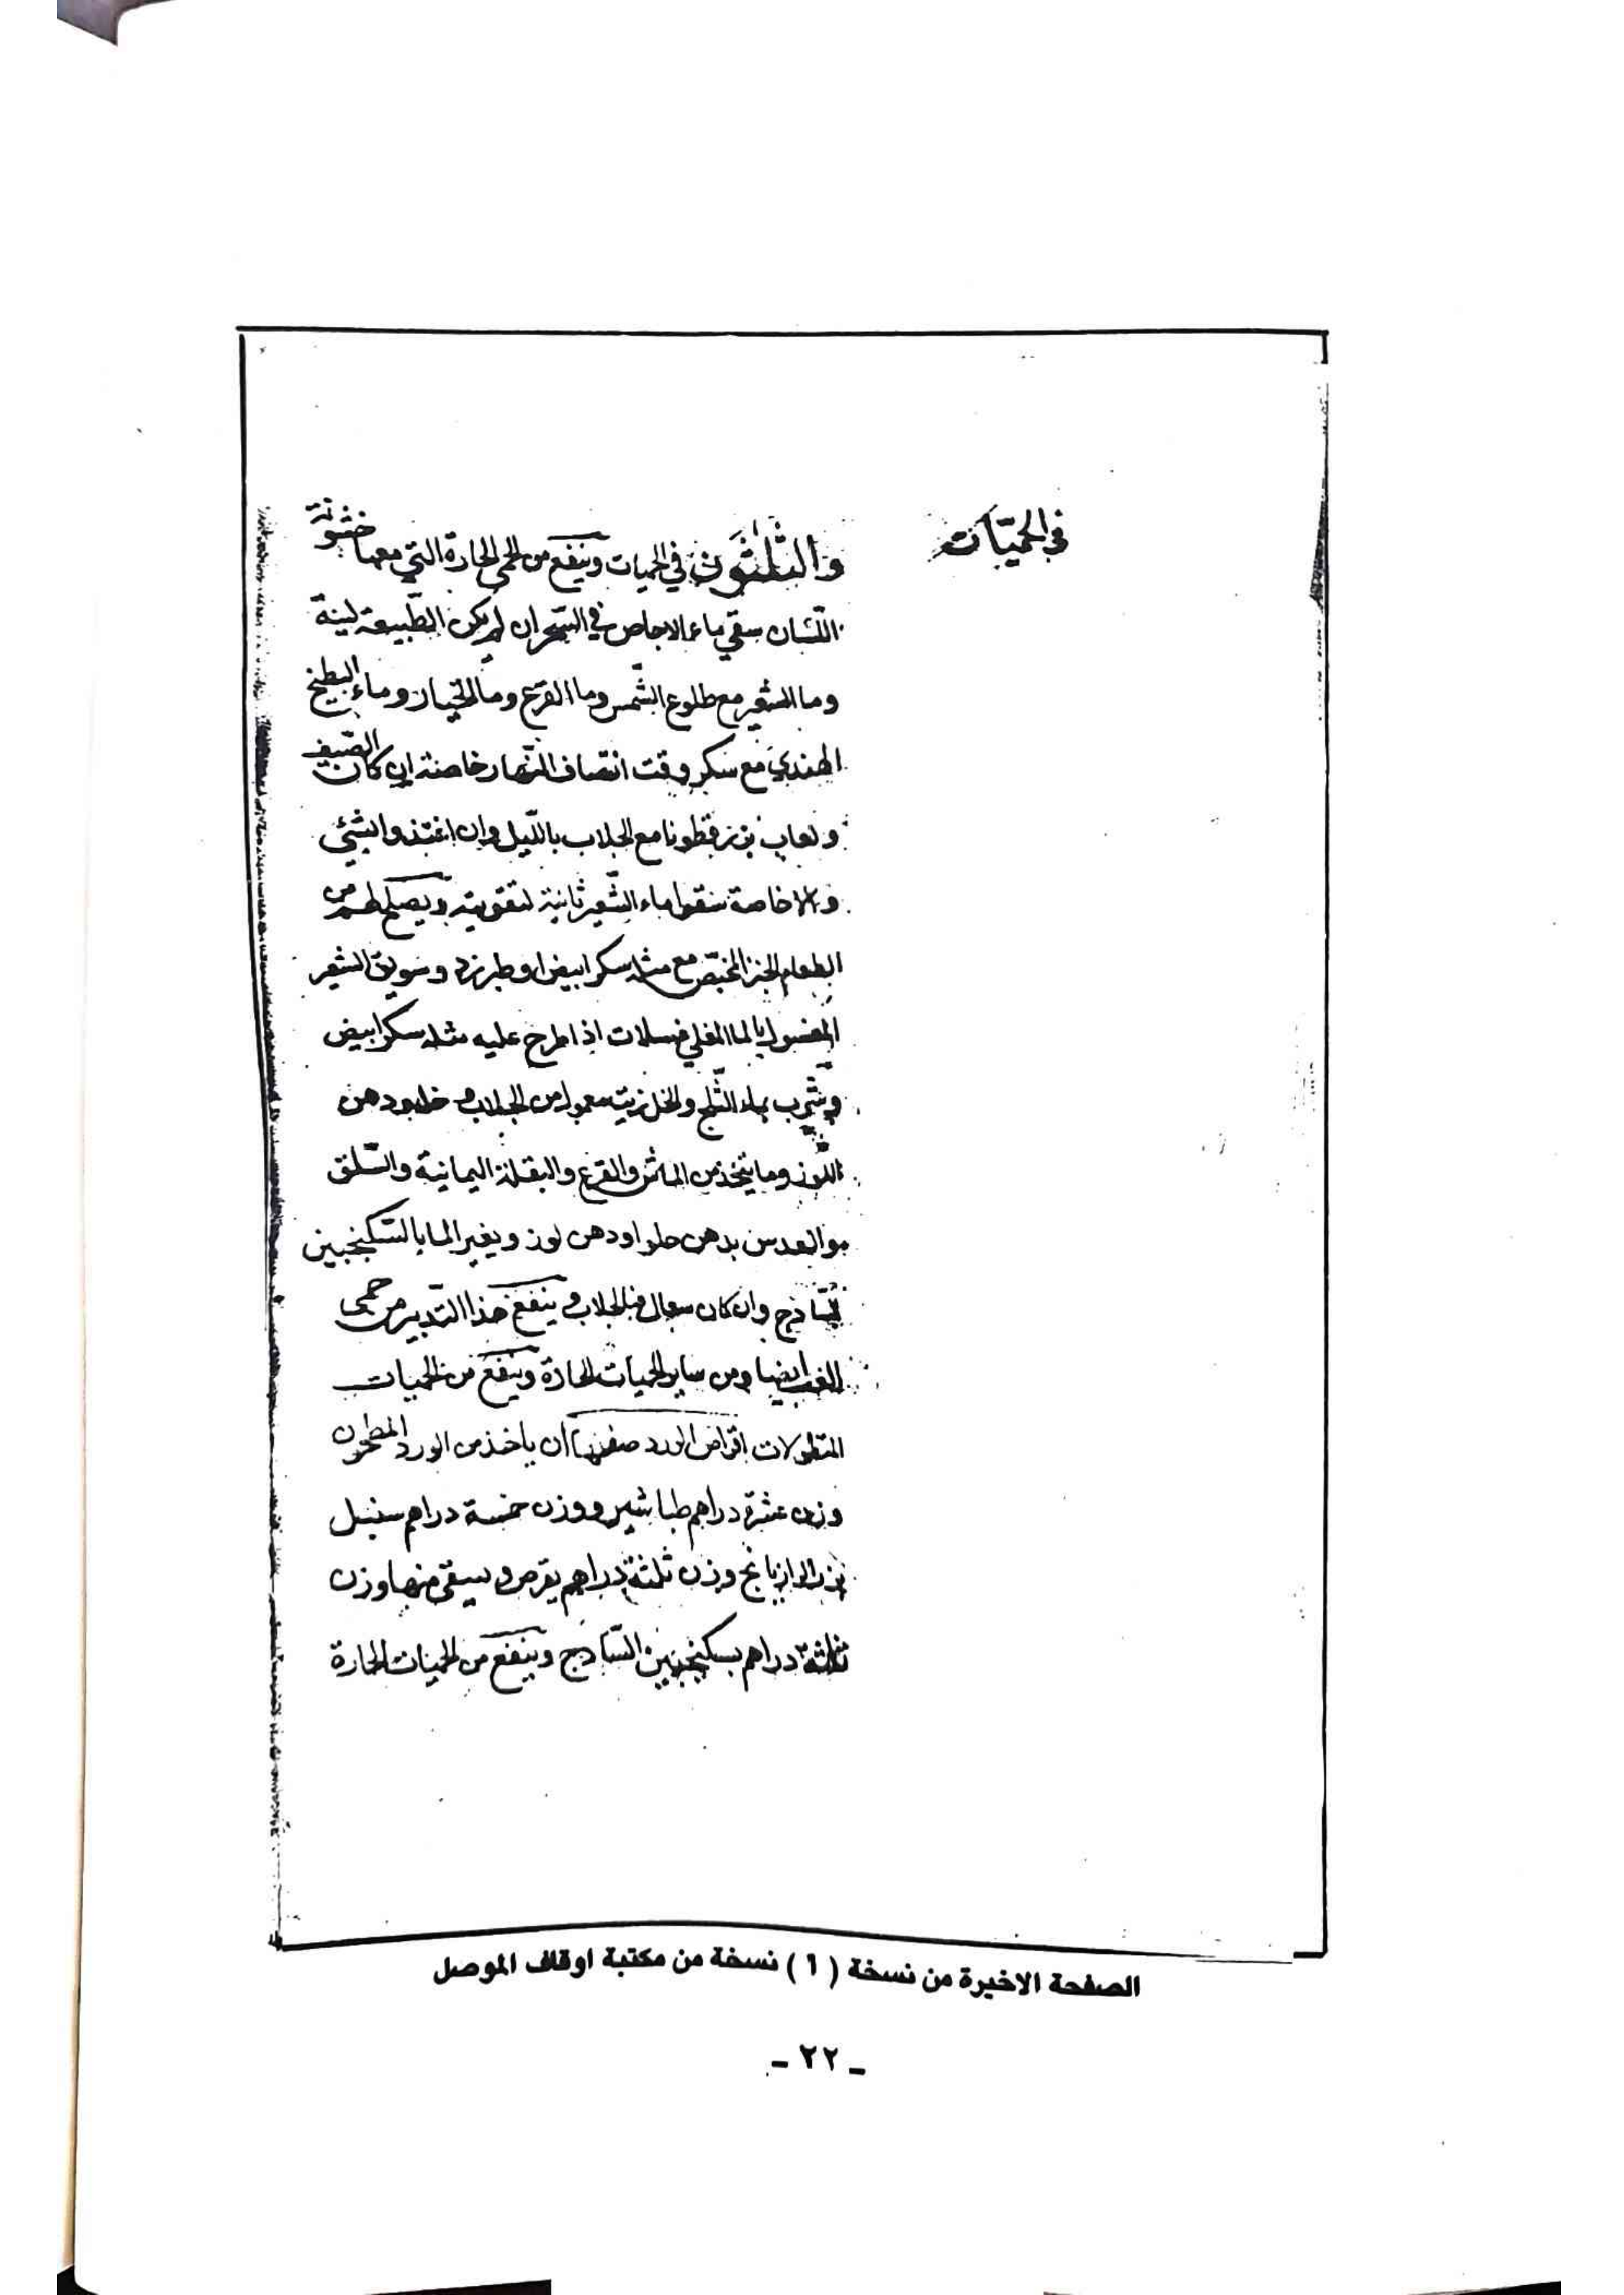 في الحميّات
والثلثون في الحميات وينفع من الحمى الحارة التي معها خشونة
اللسان سقي ماء الاجاص في السحر ان لم يكن الطبيعة لينة
وما الشعير مع طلوع الشمس وما القرع وما الخيار وماء البطيخ
الهندي مع سكر وقت انتصاف النهار خاصة ان كان الصيف
ولعاب بزر قطونا مع الجلاب بالليل وان اغتذوا بشئ
والا خاصة سقوا ماء الشعير ثانية لتقويته ويصلح لهم من
الطعام الخبز المختص مع مثله سكر ابيض او طبرزد وسويق الشعير
المغسول بالما المغلي غسلات اذا طرح عليه مثله سكر ابيض
وشرب بماء الثلج والخل زيت معمولا من الجلاب وخل ودهن
اللوز وما يتخذ من الماش والقرع والبقلة اليمانية والسلق
والعدس بدهن حل او دهن لوز ويغير الما بالسكنجبين
السّاذج وان كان سعال فبالجلاب وينفع هذا التدبير من حمى
الغب ايضا ومن ساير الحميات الحارة وينفع من الحميات
المتطولات اقراص الورد صفتها ان ياخذ من الورد المطحون
وزن عشرة دراهم طباشير ووزن خمسة دراهم سنبل
بزر الرازيانج وزن ثلثة دراهم يقرص ويسقى منها وزن
ثلثة دراهم بسكنجبين السّاذج وينفع من الحميات الحارة
الصفحة الاخيرة من نسخة ( ١ ) نسخة من مكتبة اوقاف الموصل
- ٢٢ -